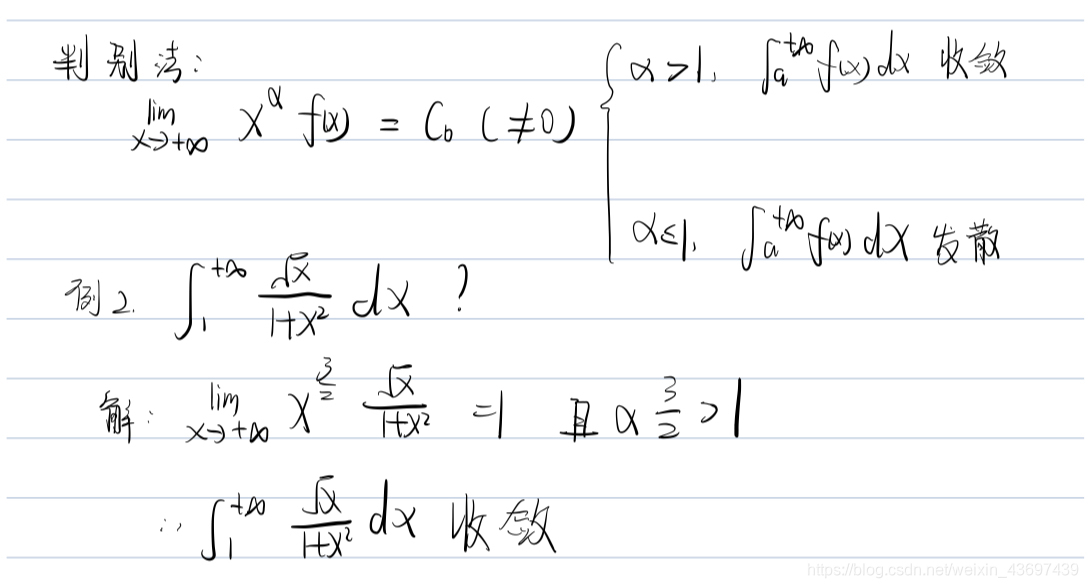 判别法：
lim x→+∞ x^α f(x) = C₀ (≠0) { α>1, ∫_a^{+∞} f(x) dx 收敛
α≤1, ∫_a^{+∞} f(x) dx 发散
例2. ∫_1^{+∞} √x/(1+x²) dx ?
解: lim x→+∞ x^{3/2} √x/(1+x²) =1 且 α 3/2 >1
∴ ∫_1^{+∞} √x/(1+x²) dx 收敛
https://blog.csdn.net/weixin_43697439